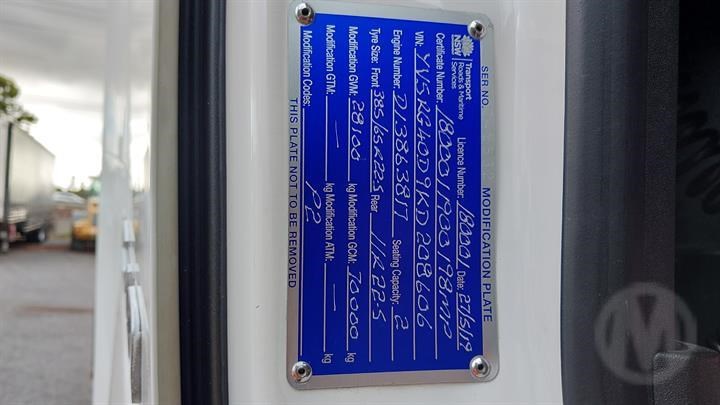 SER NO. MODIFICATION PLATE
Transport Roads & Maritime Services
NSW
Licence Number: 18000 Date: 27/5/19
Certificate Number: 18000/1900198MP
VIN: YV5RG40D9KD208606
Engine Number: D13863817 Seating Capacity: 2
Tyre Size: Front 385/65R22.5 Rear 11R22.5
Modification GVM: 28100 kg Modification GCM: 70000 kg
Modification GTM: — kg Modification ATM: — kg
Modification Codes: P2
THIS PLATE NOT TO BE REMOVED
M